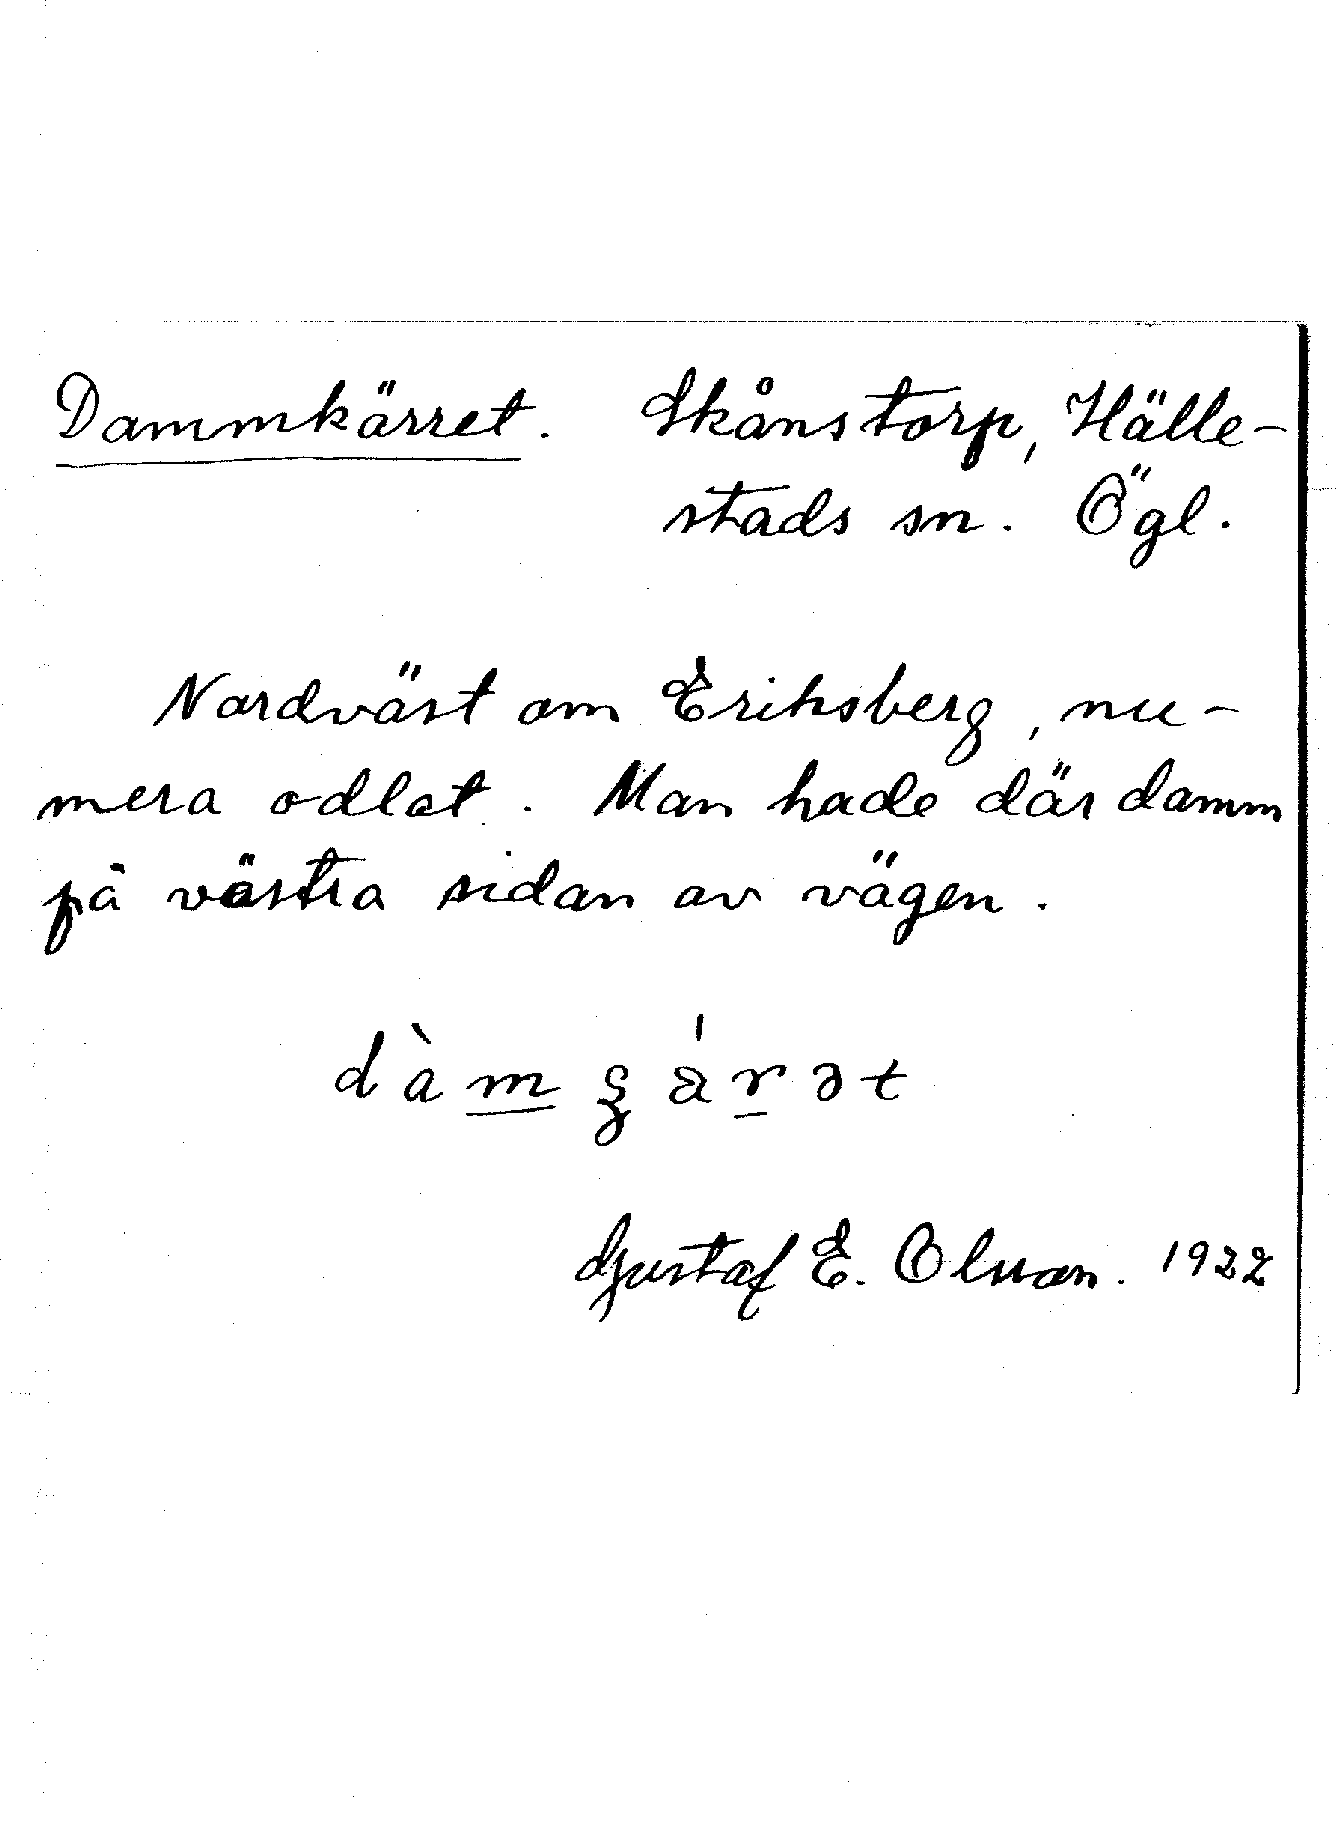 Dammkärret. Skånstorp, Hälle-
stads sn. Ögl.
Nordväst om Eriksberg, nu-
mera odlat. Man hade där damm
på västra sidan av vägen.
Gustaf E. Olsson. 1922